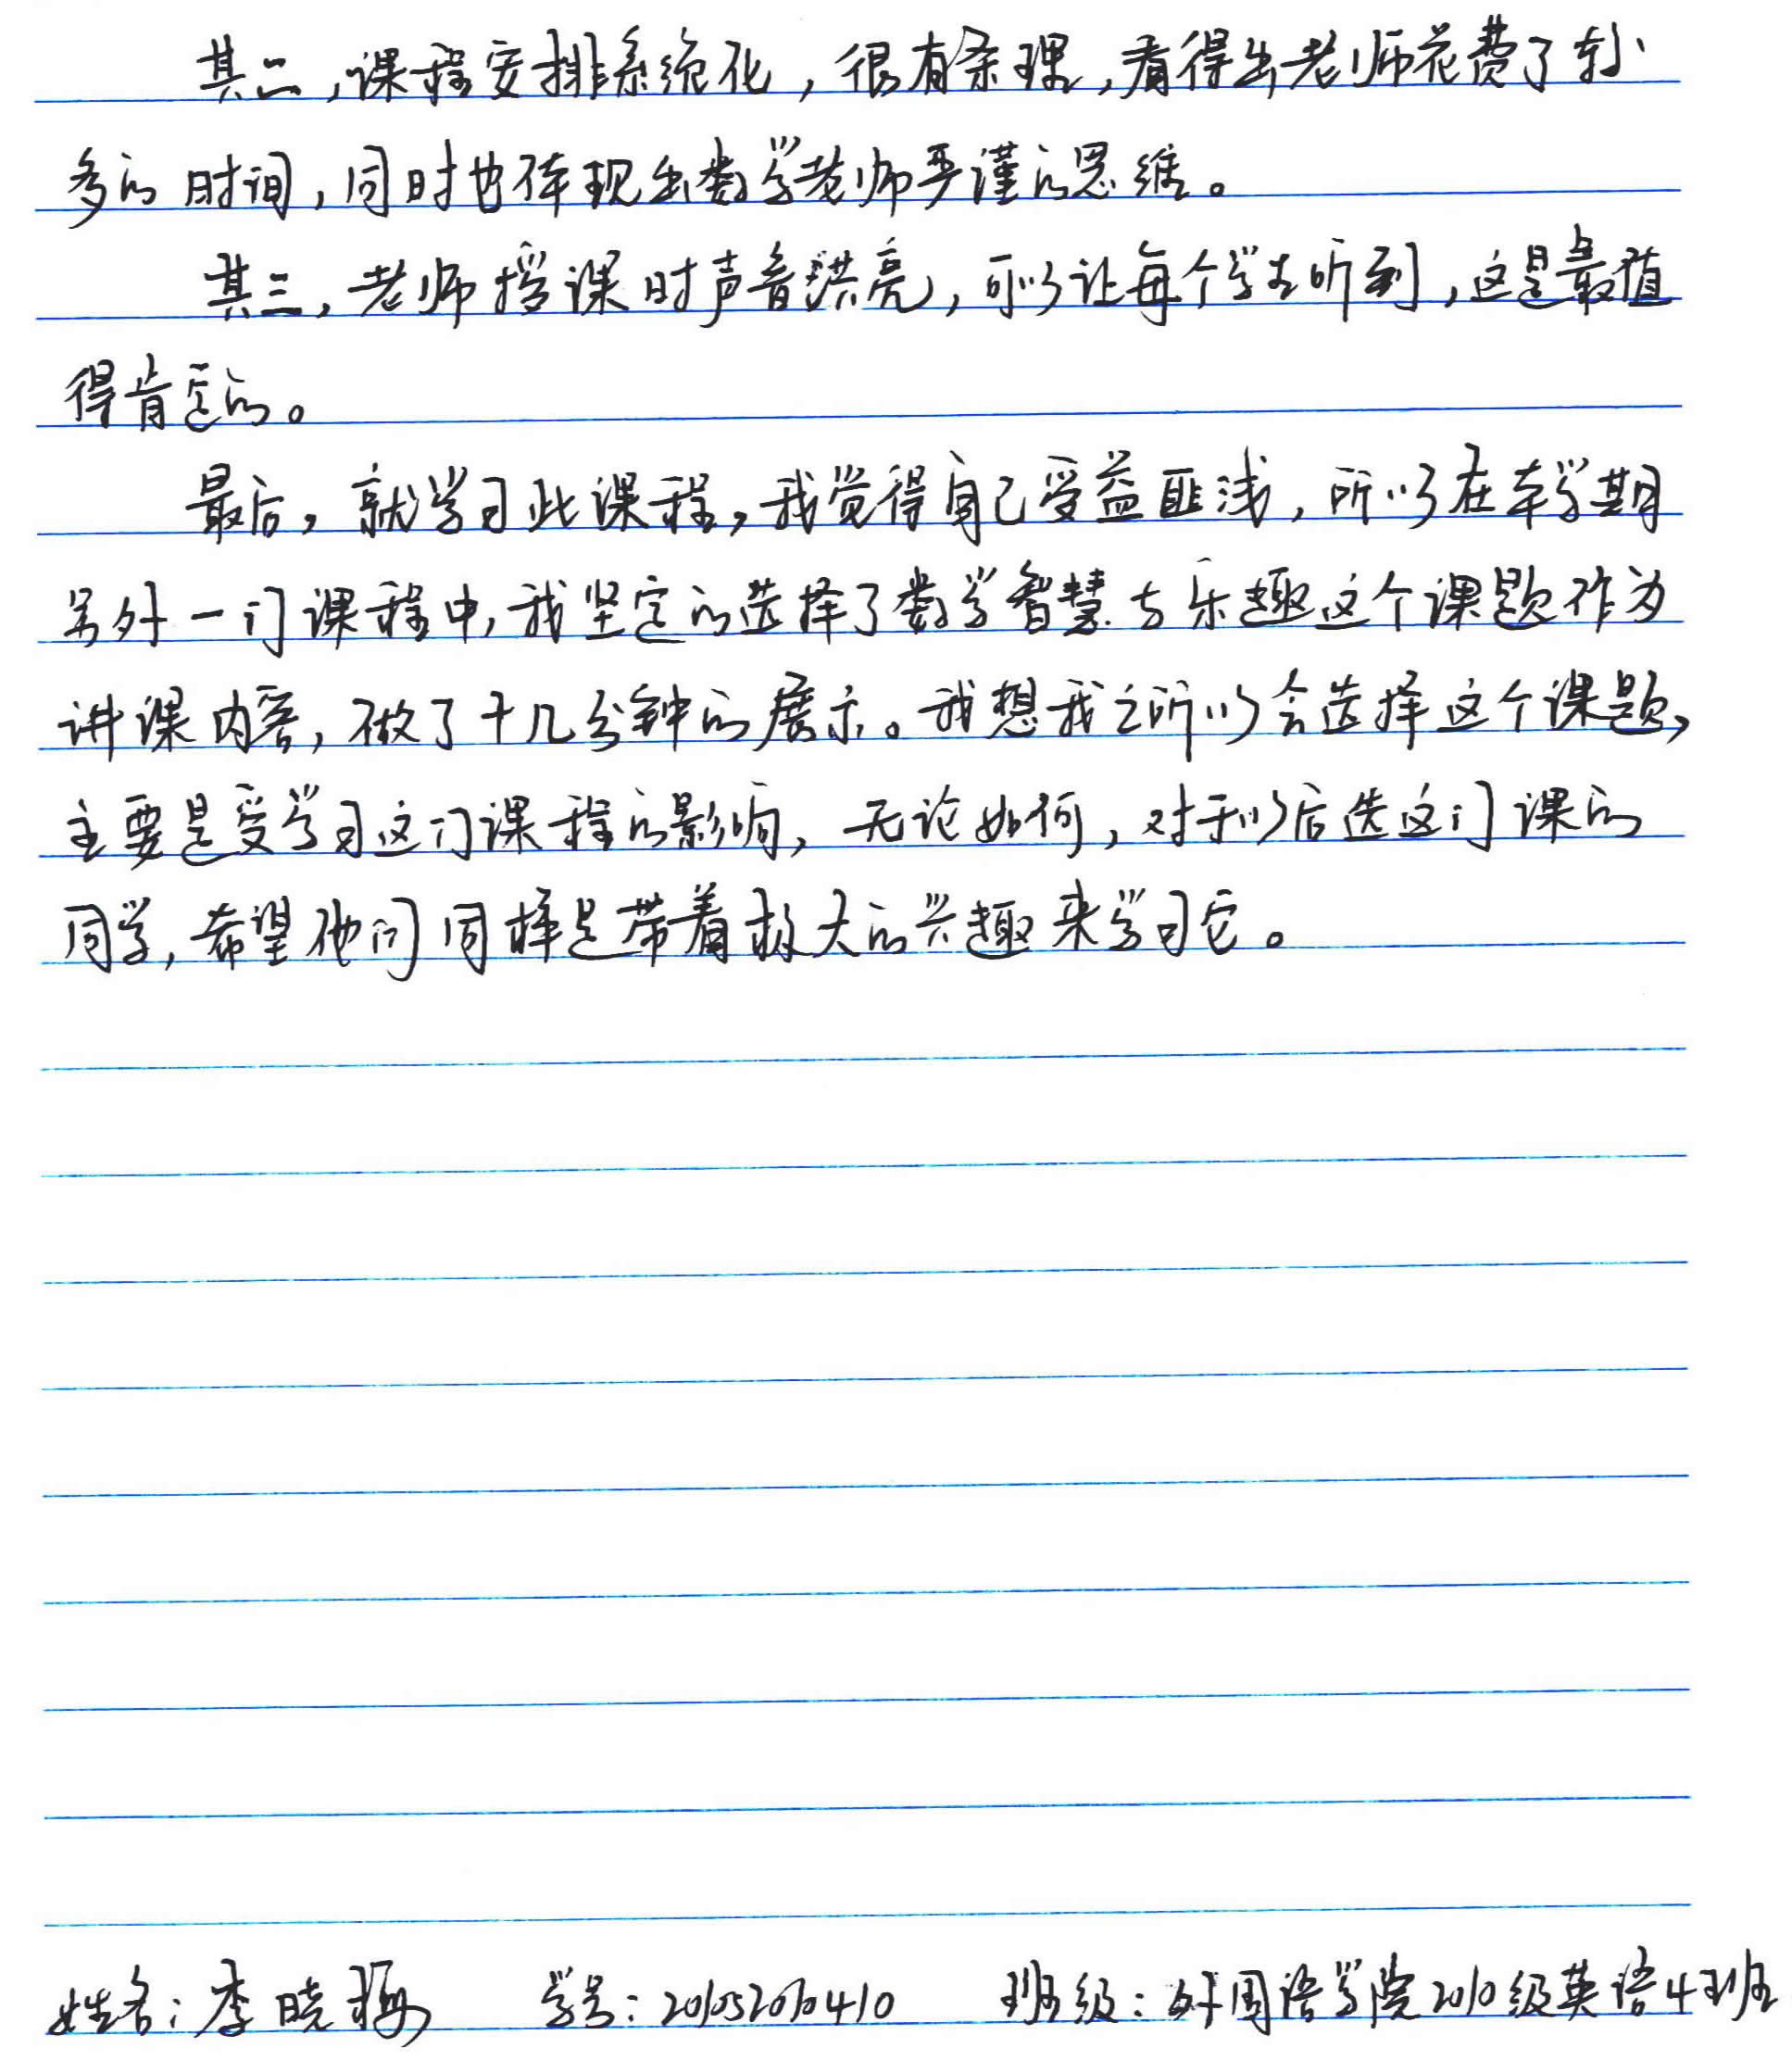 其二，课程安排系统化，很有条理，看得出老师花费了较
多的时间，同时也体现出数学老师严谨的思维。
其三，老师授课时声音洪亮，可以让每个学生听到，这是最值
得肯定的。
最后，就学习此课程，我觉得自己受益匪浅，所以在本学期
另外一门课程中，我坚定的选择了数学智慧与乐趣这个课题作为
讲课内容，做了十几分钟的展示。我想我之所以会选择这个课题，
主要是受学习这门课程的影响，无论如何，对于以后选这门课的
同学，希望他们同样是带着极大的兴趣来学习它。
姓名：李晓梅 学号：201052010410 班级：外国语学院2010级英语4班